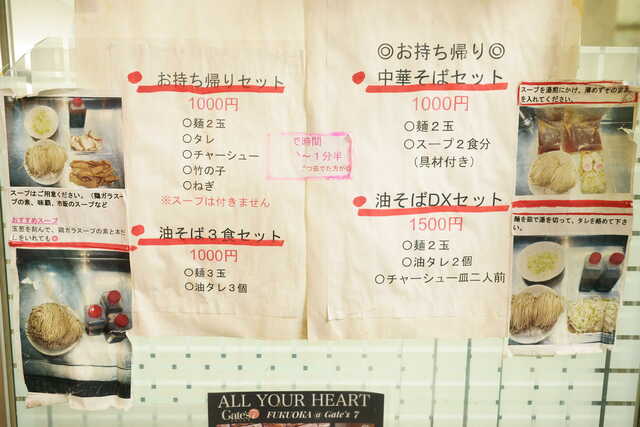 お持ち帰りセット
1000円
○麺２玉
○タレ
○チャーシュー
○竹の子
○ねぎ
※スープは付きません
油そば３食セット
1000円
○麺３玉
○油タレ３個
◎お持ち帰り◎
中華そばセット
1000円
○麺２玉
○スープ２食分
（具材付き）
油そばDXセット
1500円
○麺２玉
○油タレ２個
○チャーシュー皿二人前
で時間
～１分半
つ茹でた方が
スープはご用意ください。（鶏ガラスープ
の素、味覇、市販のスープなど
おすすめスープ
玉葱を刻んで、鶏ガラスープの素と本だ
しをいれても◎
スープを湯煎にかけ、薄めずそのまま
を入れてください。
麺を茹で湯を切って、タレを絡めて下さ
い。
ALL YOUR HEART
Gate's 7 FUKUOKA @ Gate's 7